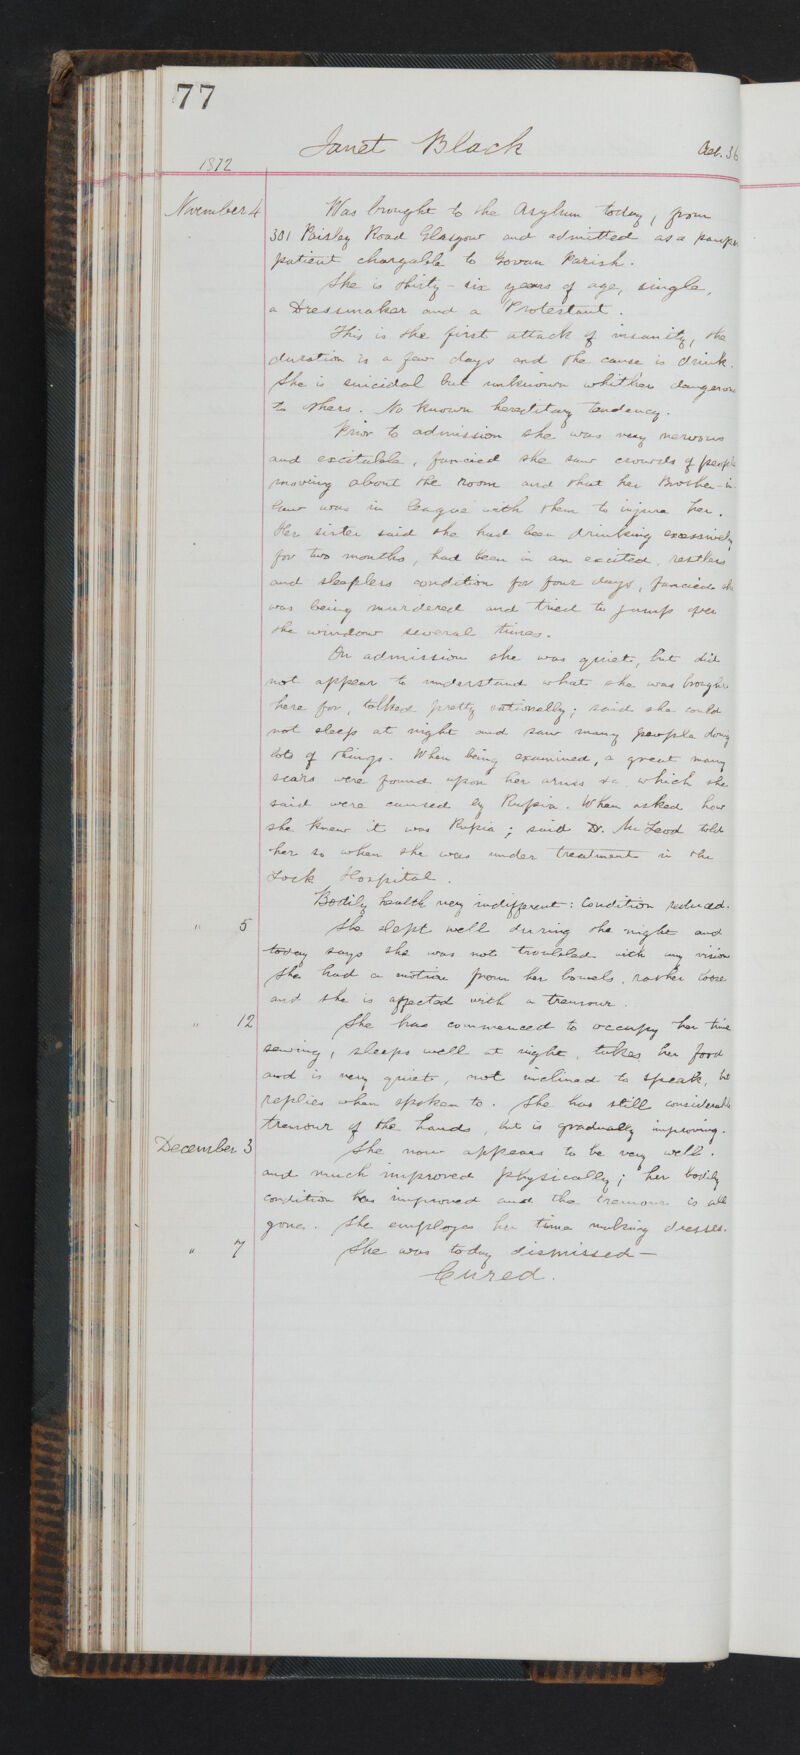 77
Janet Black Aet. 36
1872
November 4 Was brought to the Asylum today, from
301 Paisley Road Glasgow and admitted as a paupe
patient chargable to Govan Parish.
She is thirty-six years of age, single,
a Dressmaker and a Protestant.
This is the first attack of insanity, the
duration is a few days and the cause is drink.
She is suicidal but unknown whither dangerous
to others. No known hereditary tendency.
Prior to admission she was very nervous
and excitable, fancied she saw crowds of people
moving about the room and that her Brother-in
Law was in league with them to injure her.
Her sister said she had been drinking excessively
for two months, had been in an excited, restless
and sleepless condition for four days, fancied she
was being murdered and tried to jump over
the window several times.
On admission she was quiet, but did
not appear to understand what she was brought
here for, talked pretty rationally; said she could
not sleep at night and saw many people doing
lots of things. When being examined, a great many
scars were found upon her arms &c which she
said were caused by Rupia. When asked how
she knew it was Rupia; said Dr. McLeod told
her so when she was under treatment in the
Lock Hospital.
Bodily health very indifferent: Condition reduced.
" 5 She slept well during the night and
today says she was not troubled with any vision
She had a motion from her bowels, rather loose
and she is affected with a tremour.
" 12 She has commenced to occupy her time
sewing, sleeps well at night, takes her food
and is very quiet, not inclined to speak, but
replies when spoken to. She has still considerable
tremour of the hands, but is gradually improving.
December 3 She now appears to be very well.
and much improved physically; her bodily
condition has improved and the tremour is all
gone. She employes her time making dresses.
" 7 She was today dismissed—
Cured.